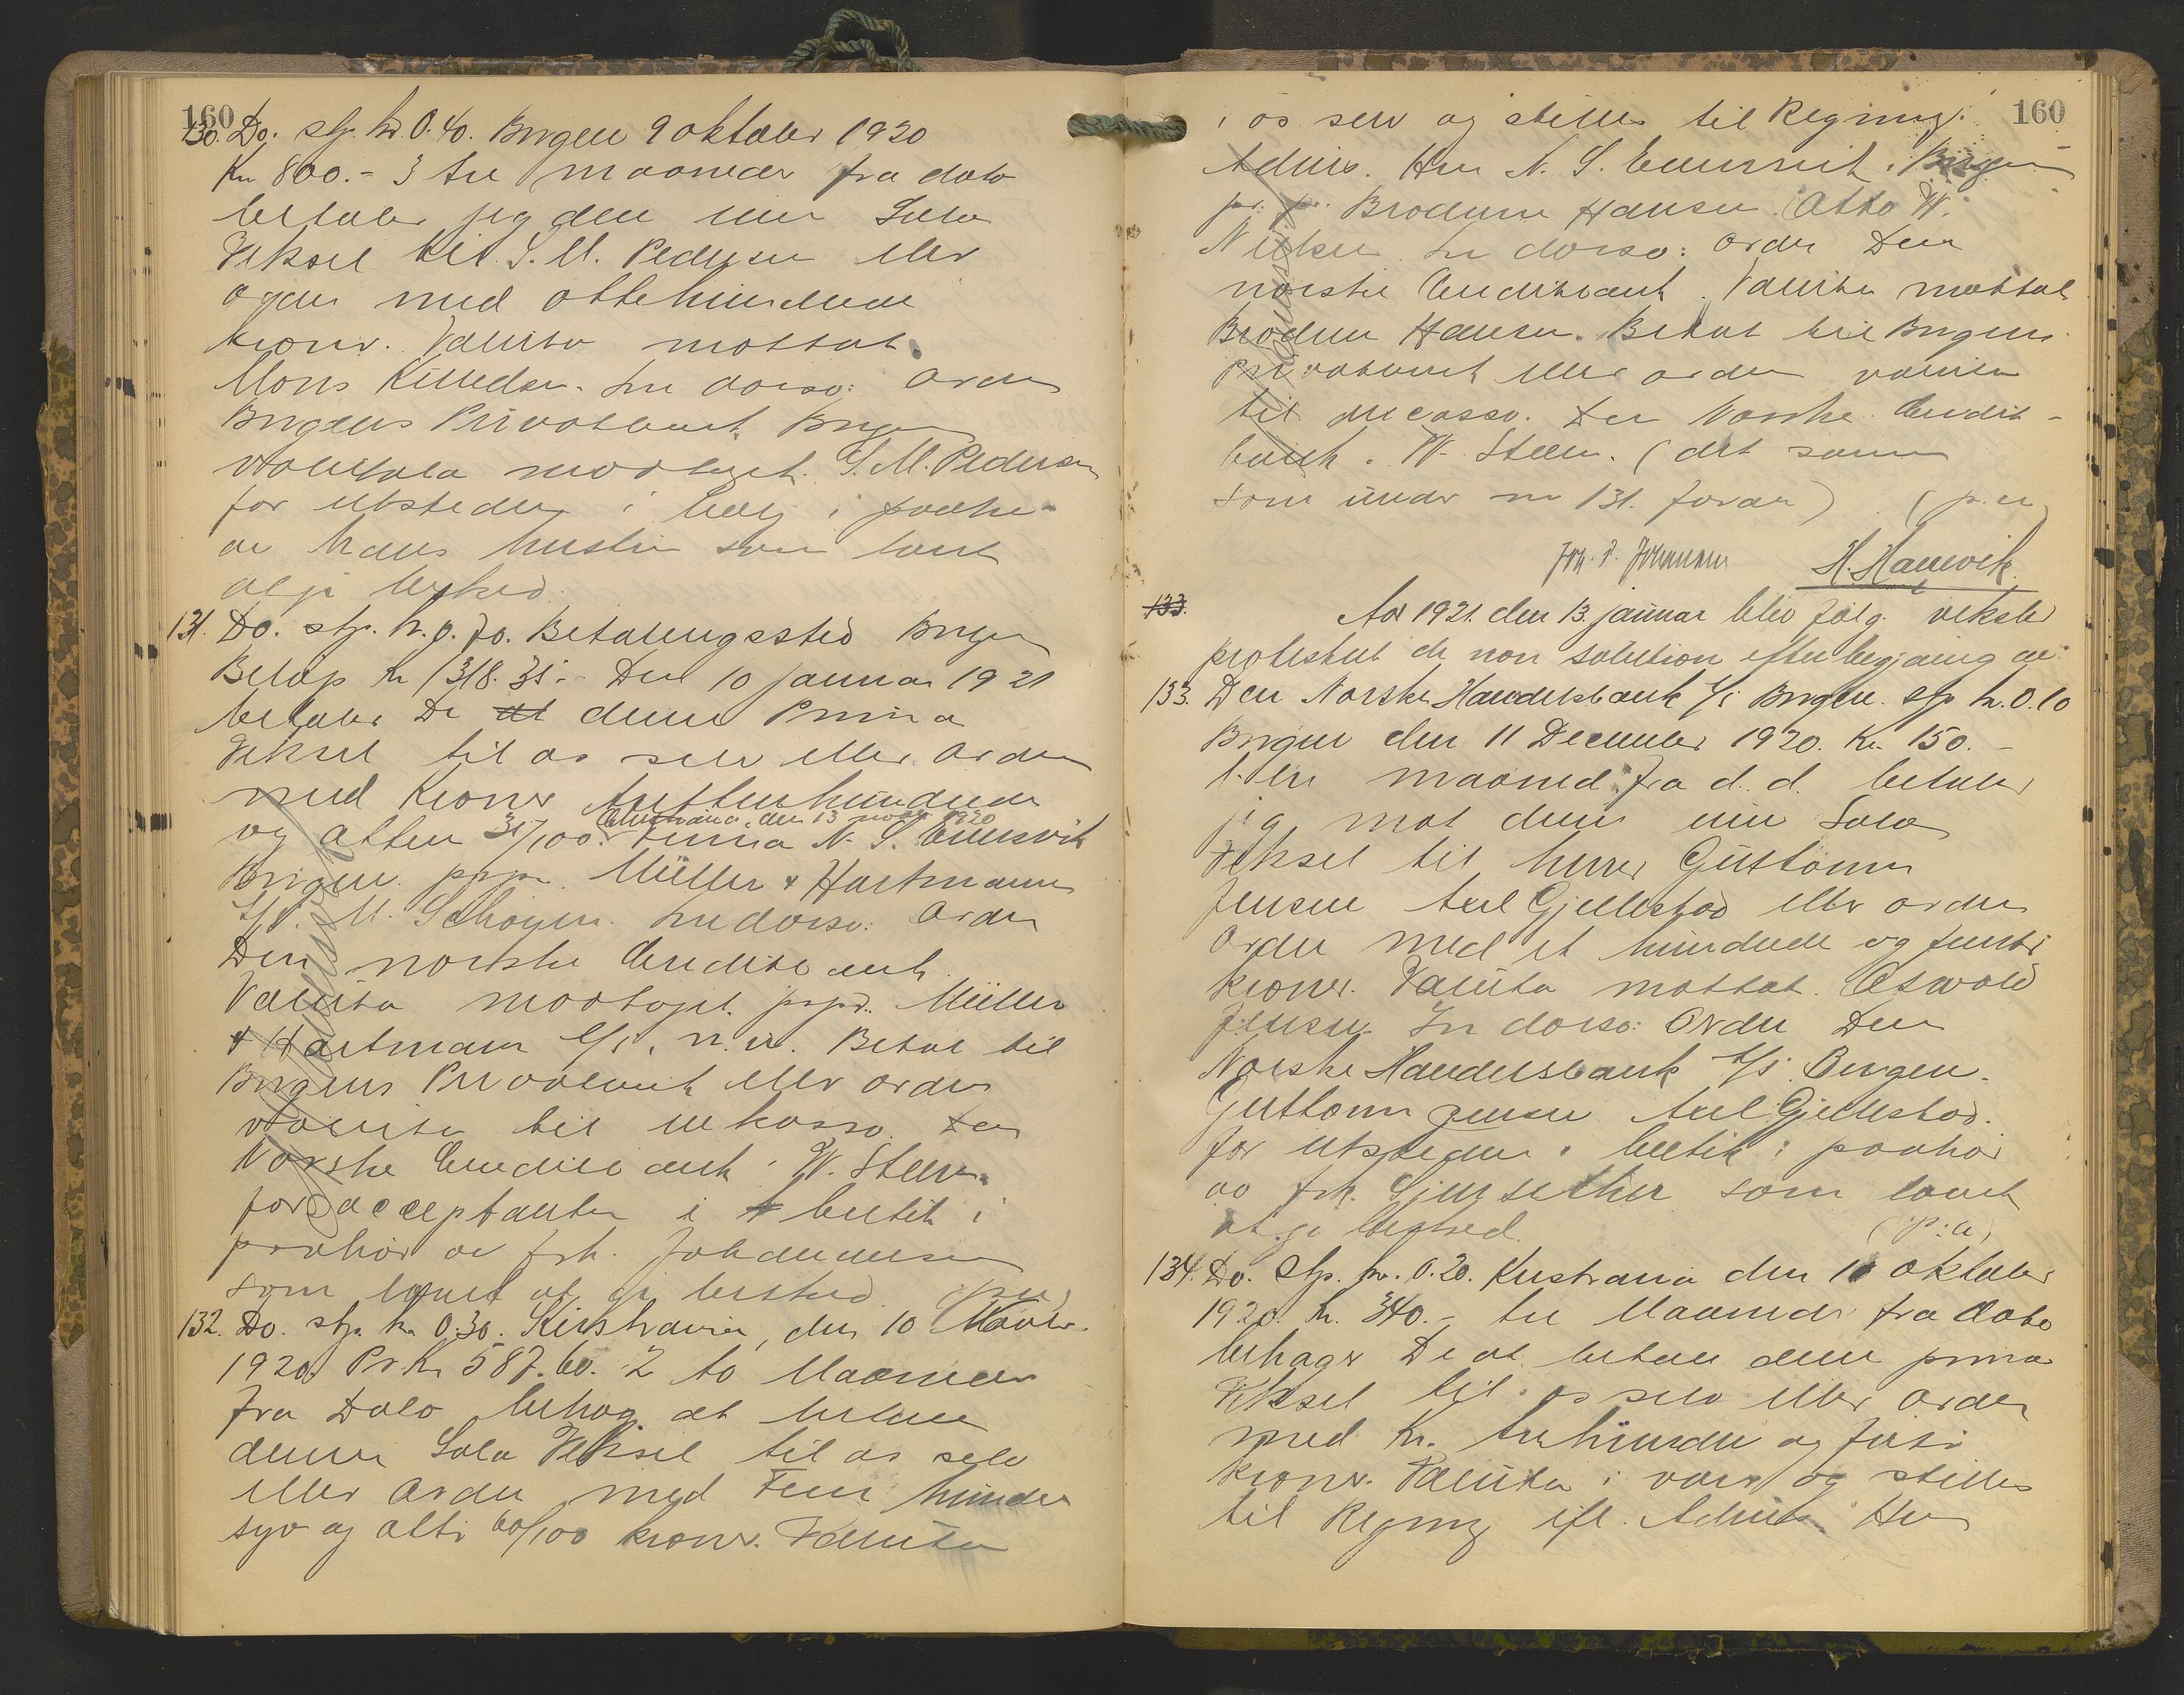 160
130. Do. stp. kr. 0.40. Bergen 9 oktober 1920
Kr 800.- 3 tre maaneder fra dato
betaler jeg denne min Sola
Veksel til S. M. Pedersen eller
ordre med ottehundrede
kroner. Valuta mottat.
Mons Knudsen. In dorso: Ordre
Bergens Privatbank Bergen
valuta modtaget. S. M. Pedersen
for utstederen i
av hans hustru som lovet
at gi besked.
131. Do. stp. kr. 0.70. Betalingssted Bergen
Beløp kr 1318.35.- Den 10 januar 1921
betaler De at denne Prima
Veksel til os selv eller ordre
med Kroner Trettenhundrede
Christiania, den 13 novbr 1920
og atten 35/100. Firma N. S. Emersvik
Bergen. prpr. Müller & Hartmann
A/S. M. Schøyen. In dorso: Ordre
Den norske Creditbank.
Valuta modtaget. prpr. Müller
& Hartmann A/S, n.n. Betal til
Bergens Privatbank eller ordre
valuta til inkasso. Den
Norske Creditbank. W. Steen.
for acceptanten i butik i
paahør av frk. Johannessen
som lovet at gi besked. (p:a)
132. Do. stp. kr 0.30. Kristiania, den 10 Novbr.
1920. Pr Kr 587.60. 2 to Maaneder
fra Dato behag at betale
denne Sola Veksel til os selv
eller Ordre med Fem hundre
syv og otti 60/100 kroner. Valuta
160
i os selv og stilles til Regning.
Adviis. Herr N. S. Emersvik, Bergen
pr. pr. Brødrene Hansen. Otto W.
Nilsen. In dorso: ordre Den
norske Creditbank. Valuta mottat
Brødrene Hansen. Betal til Bergens
Privatbank eller ordre valuta
til incasso. Den Norske Credit-
bank. W. Steen. (det samme
som under nr 131. foran) (p.a)
Joh. P. Johannesen H. Hauvik
133. Aar 1921. den 13. januar blev følg. veksler
protestert de non solution efter begjæring av:
133. Den Norske Handelsbank A/S Bergen. stp kr. 0.10
Bergen den 11 December 1920. Kr. 150.-
1. en maaned fra d. d. betaler
jeg mot denne min Sola
Veksel til herrer Guttorm
Jensen Axel Gjellestad eller ordre
Ordre med et hundrede og femti
kroner. Valuta mottat. Oswald
Jensen. In dorso: Ordre Den
Norske Handelsbank A/S Bergen.
Guttorm Jensen Axel Gjellestad.
for utstederen i butik i paahør
av frk. som lovet
at gi besked. (p:a)
134. Do. Stp. kr. 0.20. Kristiania den 10 oktober
1920. kr. 340.- tre Maaneder fra dato
behager De at betale denne prima
Veksel til os selv eller ordre
med Kr. trehundre og firti
kroner. Valuta i varer og stilles
til Regning ifl. Adviis. Herr